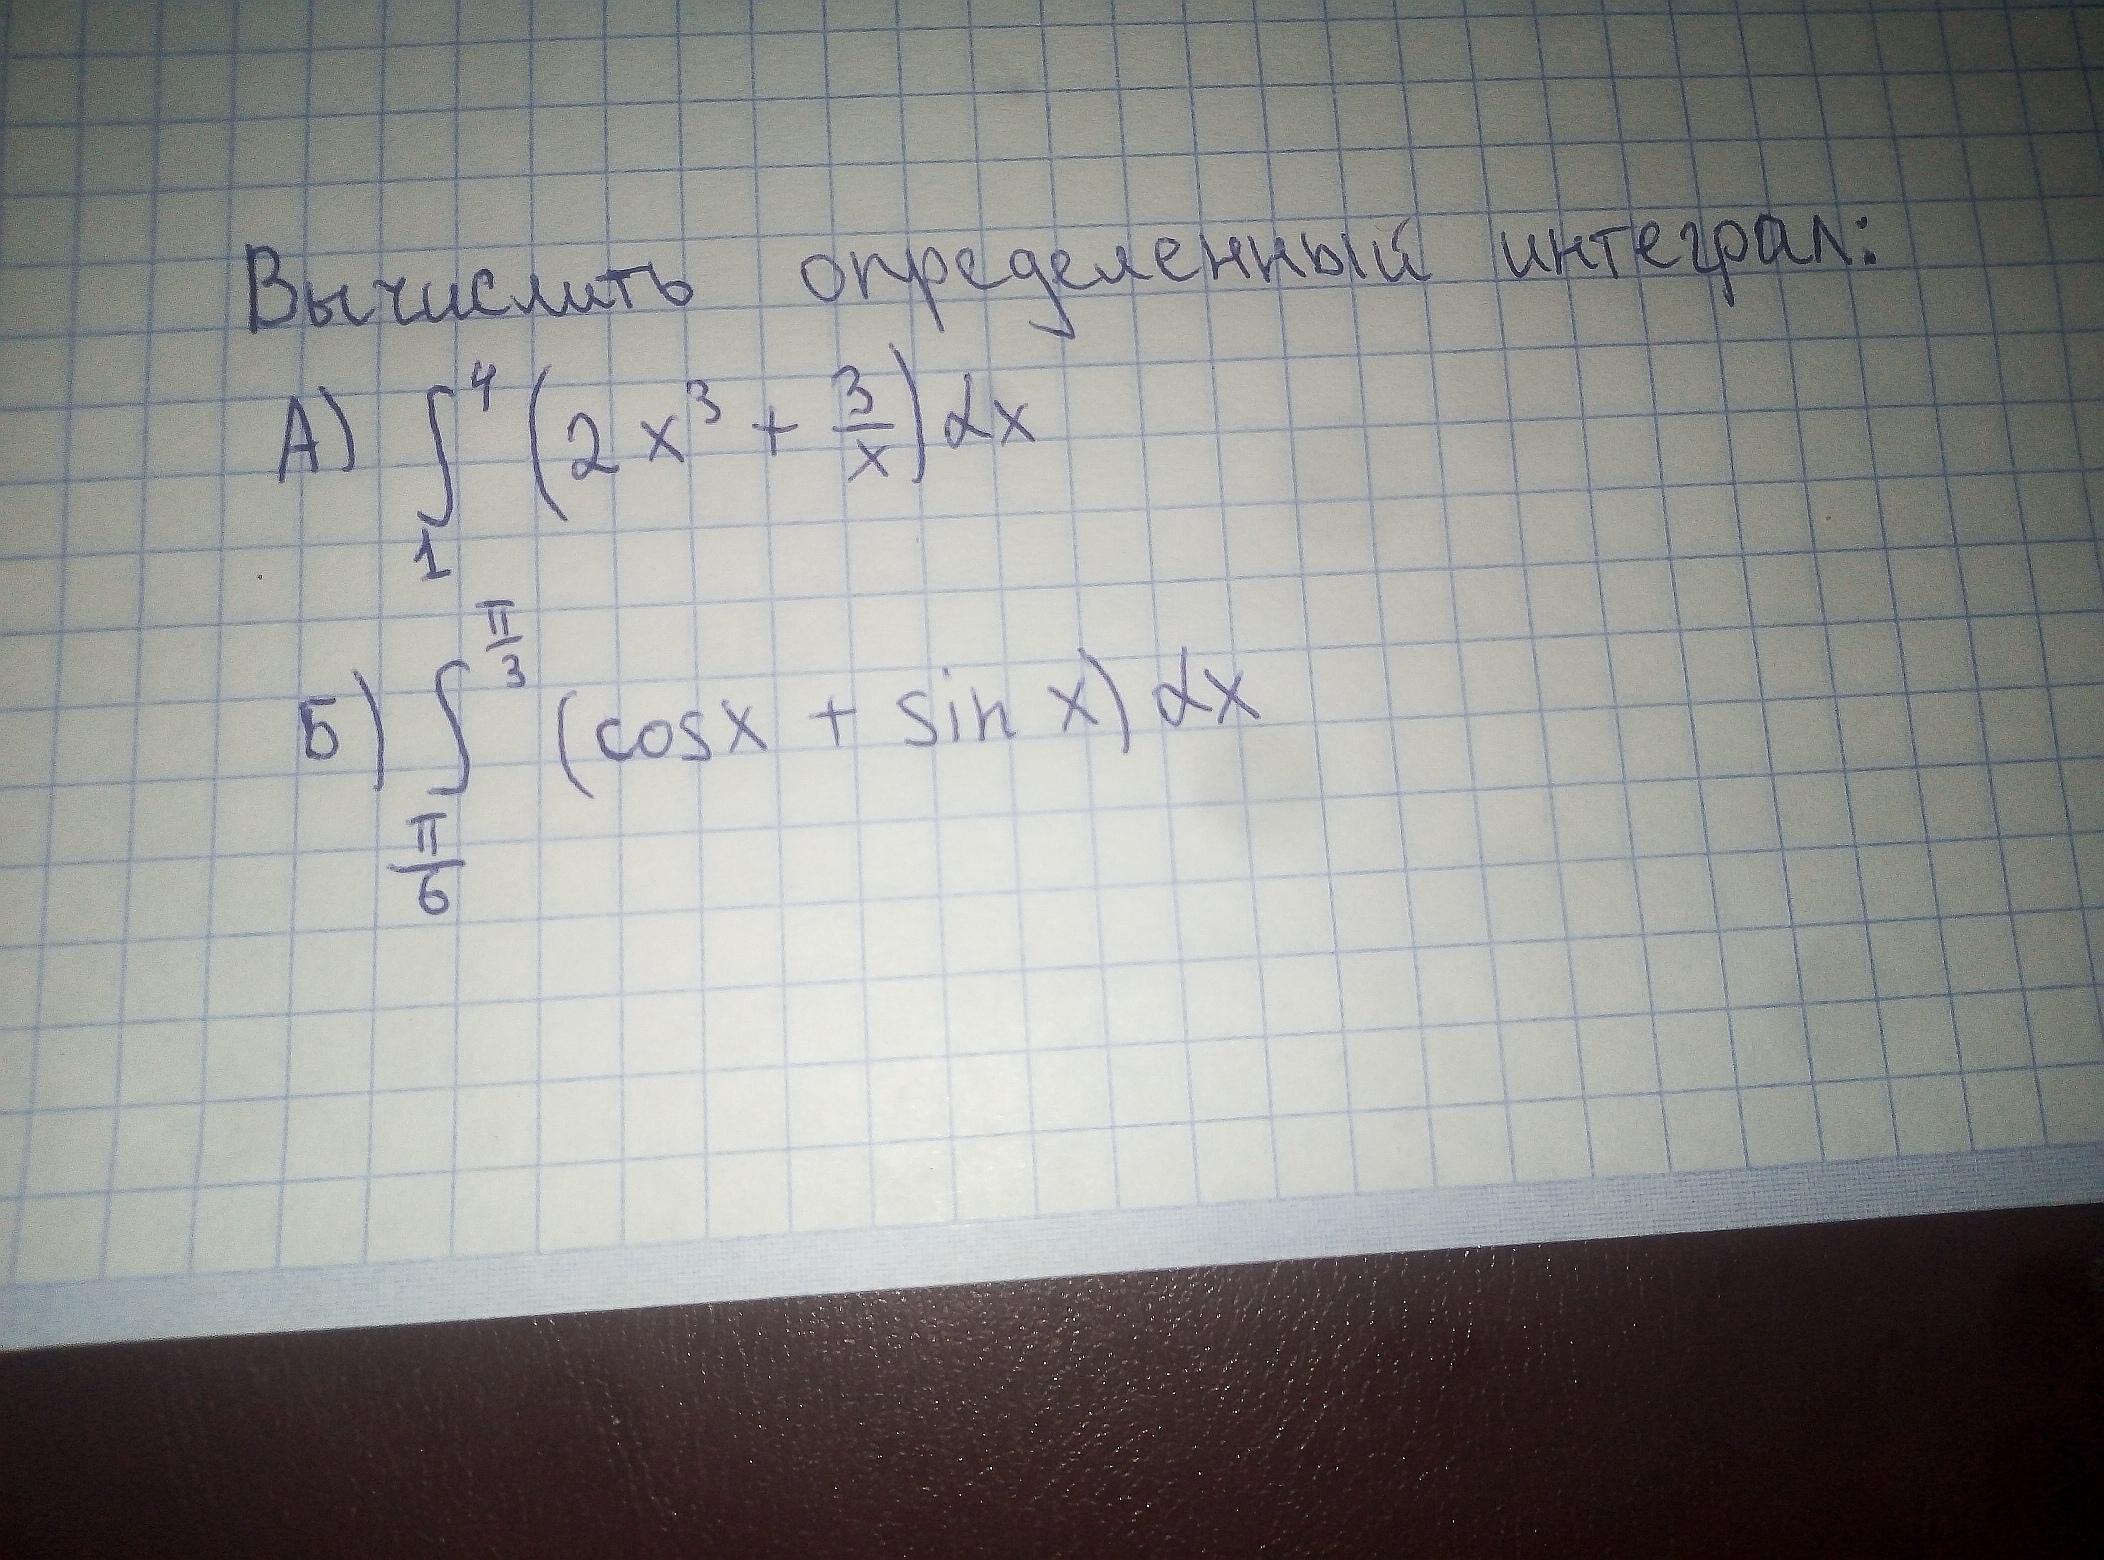 Вычислить определенный интеграл:
А) ∫₁⁴ (2x³ + 3/x) dx
Б) ∫_{π/6}^{π/3} (cosx + sin x) dx